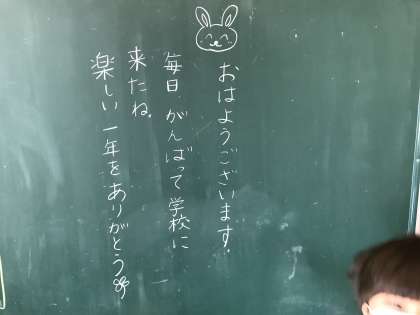 おはようございます。
毎日がんばって学校に
来たね。
楽しい一年をありがとう